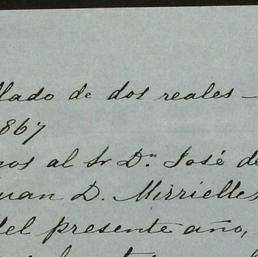 llado de dos reales —
867
nos al Sr Dn. José de
uan D. Mirrielles
del presente año,